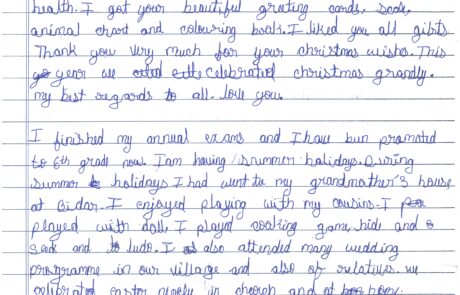 health. I got your beautiful greeting cards, scale,
animal chart and colouring book. I liked you all gibts
Thank you very much for your christmas wishes. This
year we celebrated christmas grandly.
my best regards to all. love you.
I finished my annual exams and I have bun promoted
to 6th grad now. I am having summer holidays. During
summer holidays I had went to my grandmother's house
at Bidar. I enjoyed playing with my cousins. I
played with doll, I played cooking game, hide and
seek and ludo. I also attended many wedding
programme in our village and also of relatives. we
celibrated easter nicely in church and at home.